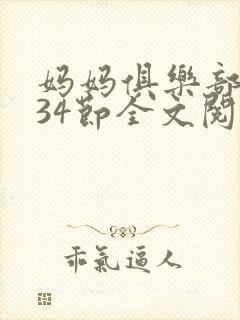 妈妈俱樂部
34節全文閱
乖氣逼人